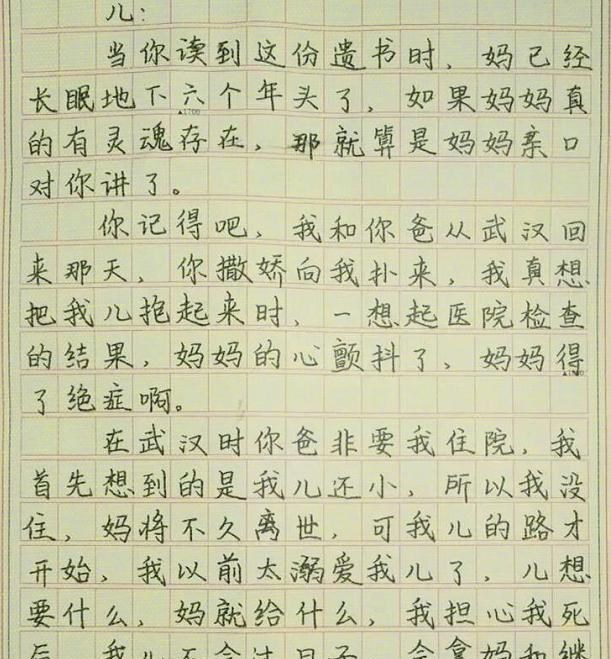 儿：
当你读到这份遗书时，妈已经
长眠地下六个年头了，如果妈妈真
▲1700
的有灵魂存在，那就算是妈妈亲口
对你讲了。
你记得吧，我和你爸从武汉回
来那天，你撒娇向我扑来，我真想
把我儿抱起来时，一想起医院检查
的结果，妈妈的心颤抖了，妈妈得
了绝症啊。
在武汉时你爸非要我住院，我
首先想到的是我儿还小，所以我没
住，妈将不久离世，可我儿的路才
开始，我以前太溺爱我儿了，儿想
要什么，妈就给什么，我担心我死
后，我儿不会过日子，会拿妈和继